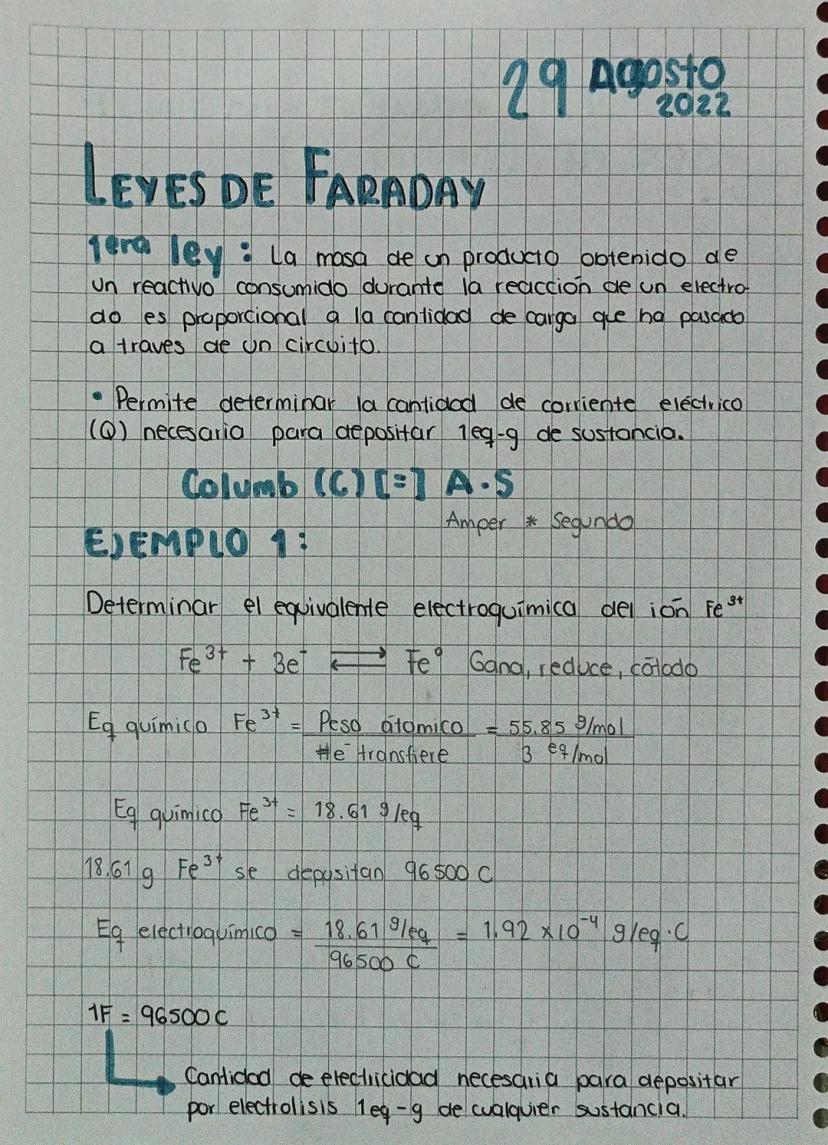 29 Agosto
2022
LEYES DE FARADAY
1era ley: La masa de un producto obtenido de
un reactivo consumido durante la reacción de un electro-
do es proporcional a la cantidad de carga que ha pasado
a traves de un circuito.
• Permite determinar la cantidad de corriente eléctrico
(Q) necesaria para depositar 1eq-g de sustancia.
Columb (C) [=] A·S
Amper * Segundo
EJEMPLO 1:
Determinar el equivalente electroquímica del ión Fe³⁺
Fe³⁺ + 3e⁻ ⇄ Fe⁰ Gana, reduce, cátodo
Eq químico Fe³⁺ = Peso átomico / #e⁻ transfiere = 55.85 g/mol / 3 eq/mol
Eq químico Fe³⁺ = 18.61 g/eq
18.61 g Fe³⁺ se depositan 96500 C
Eq electroquímico = 18.61 g/eq / 96500 C = 1.92 x10⁻⁴ g/eq·C
1F = 96500C
Cantidad de electricidad necesaria para depositar
por electrolisis 1eq-g de cualquier sustancia.